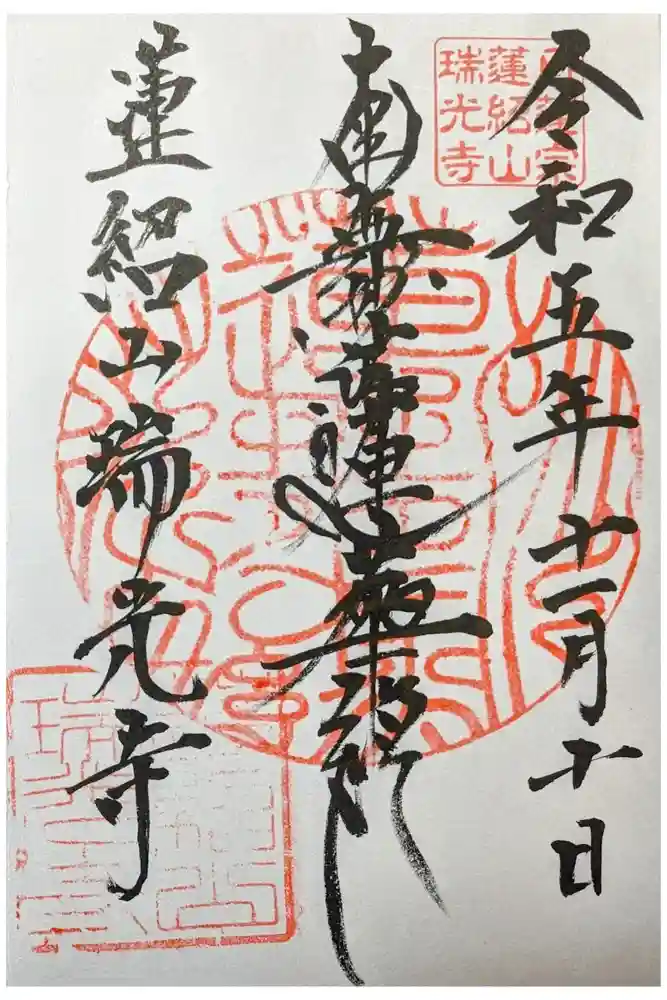 令和五年十一月十日
南無妙法蓮華経
蓮紹山瑞光寺
日蓮宗
蓮紹山
瑞光寺